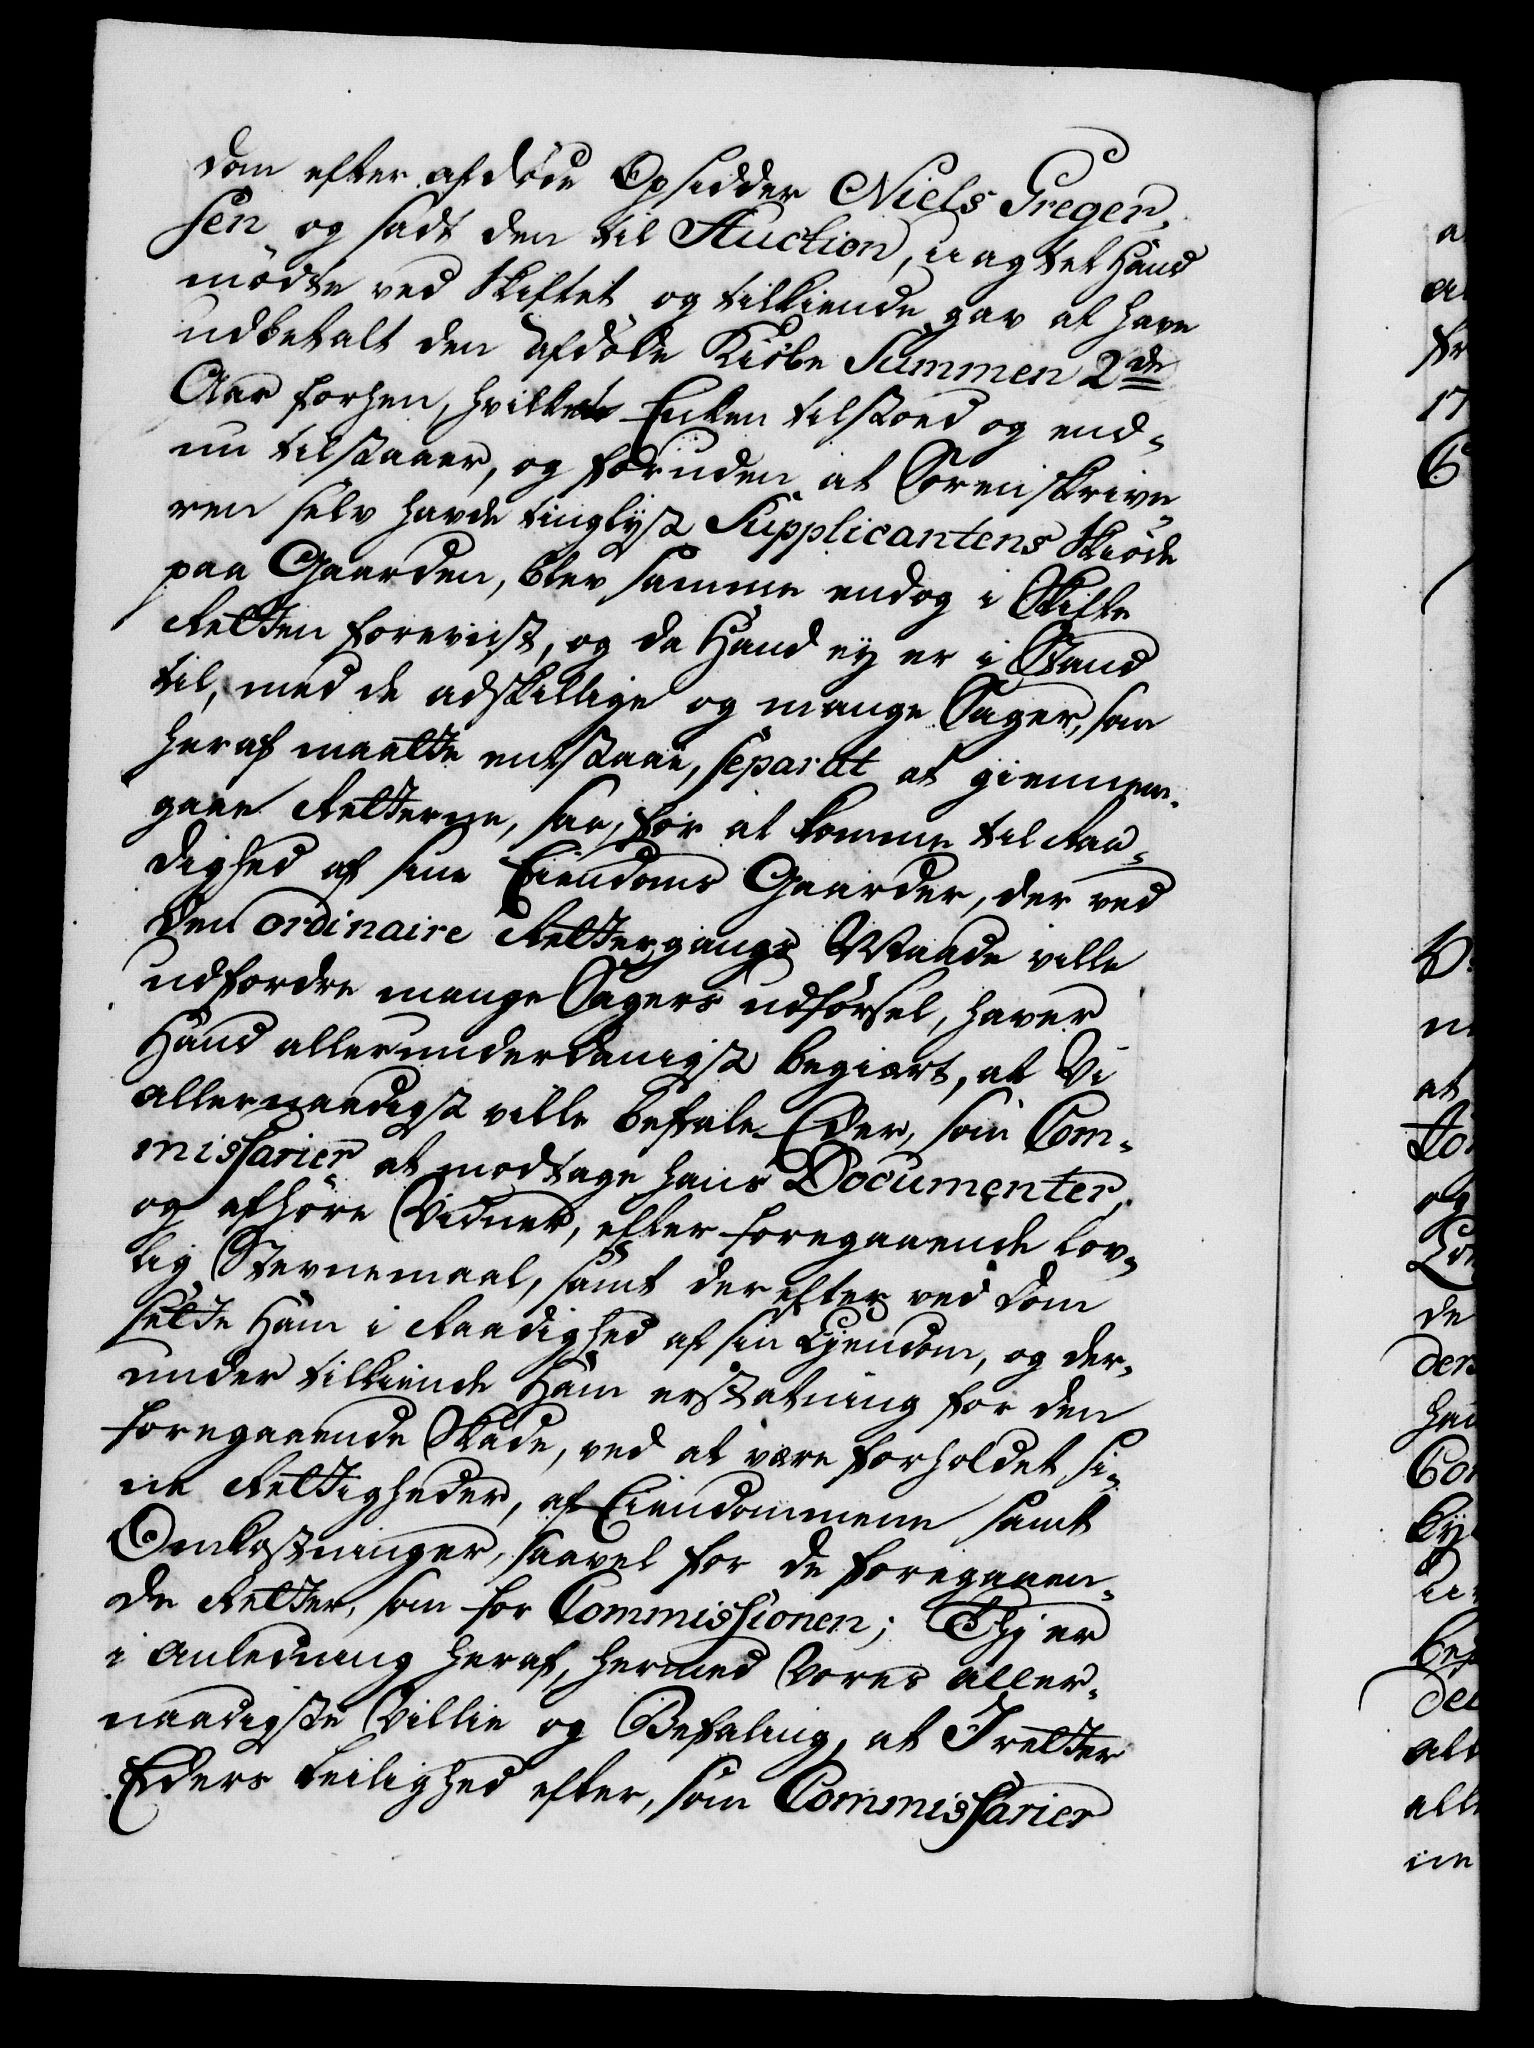 dom efter afdøde Opsidder Niels Greger¬
sen og sadt den til Auction, uagtet Hand
mödte ved Skiftet og tilkiende gav at have
udbetalt den afdøde Kiøbe Summen 2de
Aar forhen, hvilket Enken tilstoed og end¬
nu tilstaaer, og foruden at Sorenskrive¬
ren selv havde tinglyst Supplicantens Skiöde
paa Gaarden, blev samme endog i Skifte
Retten foreviist, og da Hand ej er i Stand
til, med de adskillige og mange Sager, som
heraf maatte entstaae, separat at giennem¬
gaae Retterne, saa, for at komme til Raa¬
dighed af sine Eiendoms Gaarder, der ved
den ordinaire Rettergangs Maade ville
udfordre mange Sagers udførsel, haver
Hand allerunderdanigst begiært, at Vi
allernaadigst ville befale Eder, som Com¬
missarier at modtage hans Documenter,
og afhøre Vidner, efter foregaaende lov¬
lig Stevnemaal, samt derefter ved Dom
sette Ham i Raadighed af sin Ejendom, og der¬
under tilkiende Ham erstatning for den
foregaaende Skade, ved at være forholdet si¬
ne Rettigheder, af Eiendommene samt
Omkostninger, saavel for de foregaaen¬
de Retter, som for Commissionen; Thj er
i Anledning heraf, hermed Vores aller¬
naadigste Villie og Befaling, at I retter
Eders Leilighed efter, som Commissarier